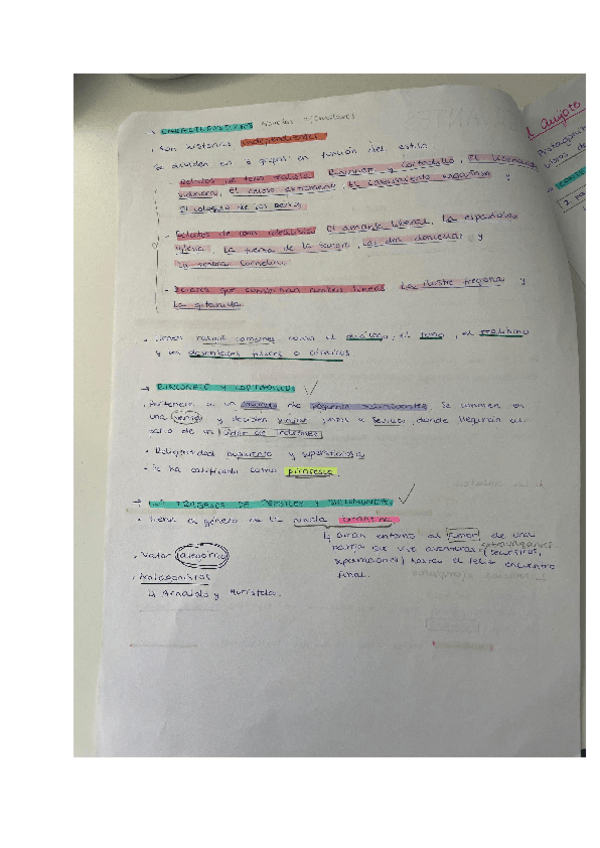 → CARACTERÍSTICAS Novelas Ejemplares
· Son historias independientes
Se dividen en 3 grupos en función del estilo
- Relatos de tono realista Rinconete y Cortadillo, El licenciado
vidriera, El celoso extremeño, El casamiento engañoso y
El coloquio de los perros
- Relatos de corte idealista El amante liberal, La española
inglesa, La fuerza de la sangre, Las dos doncellas y
La señora Cornelia
- Relatos que combinan ambas líneas La ilustre fregona y
La gitanilla
· rasgos comunes como el diálogo, el humor, el realismo
y un desenlace
→ RINCONETE Y CORTADILLO
· Pertenece a un de pequeños delincuentes. Se conocen en
una venta y deciden viajar juntos a Sevilla, donde llegarán al
patio de un líder de ladrones
· Religiosidad y supersticiosa
· Se ha calificado como picaresca
→ LOS TRABAJOS DE PERSILES Y SIGISMUNDA
· Tiene el género de la novela bizantina
↳ Giran entorno al amor de una
pareja que vive aventuras extravagantes (secuestros,
separaciones) hasta el feliz encuentro
final.
· Valor alegórico
· Antagonistas
↳ Arnaldo y
el quijote
Protagonista